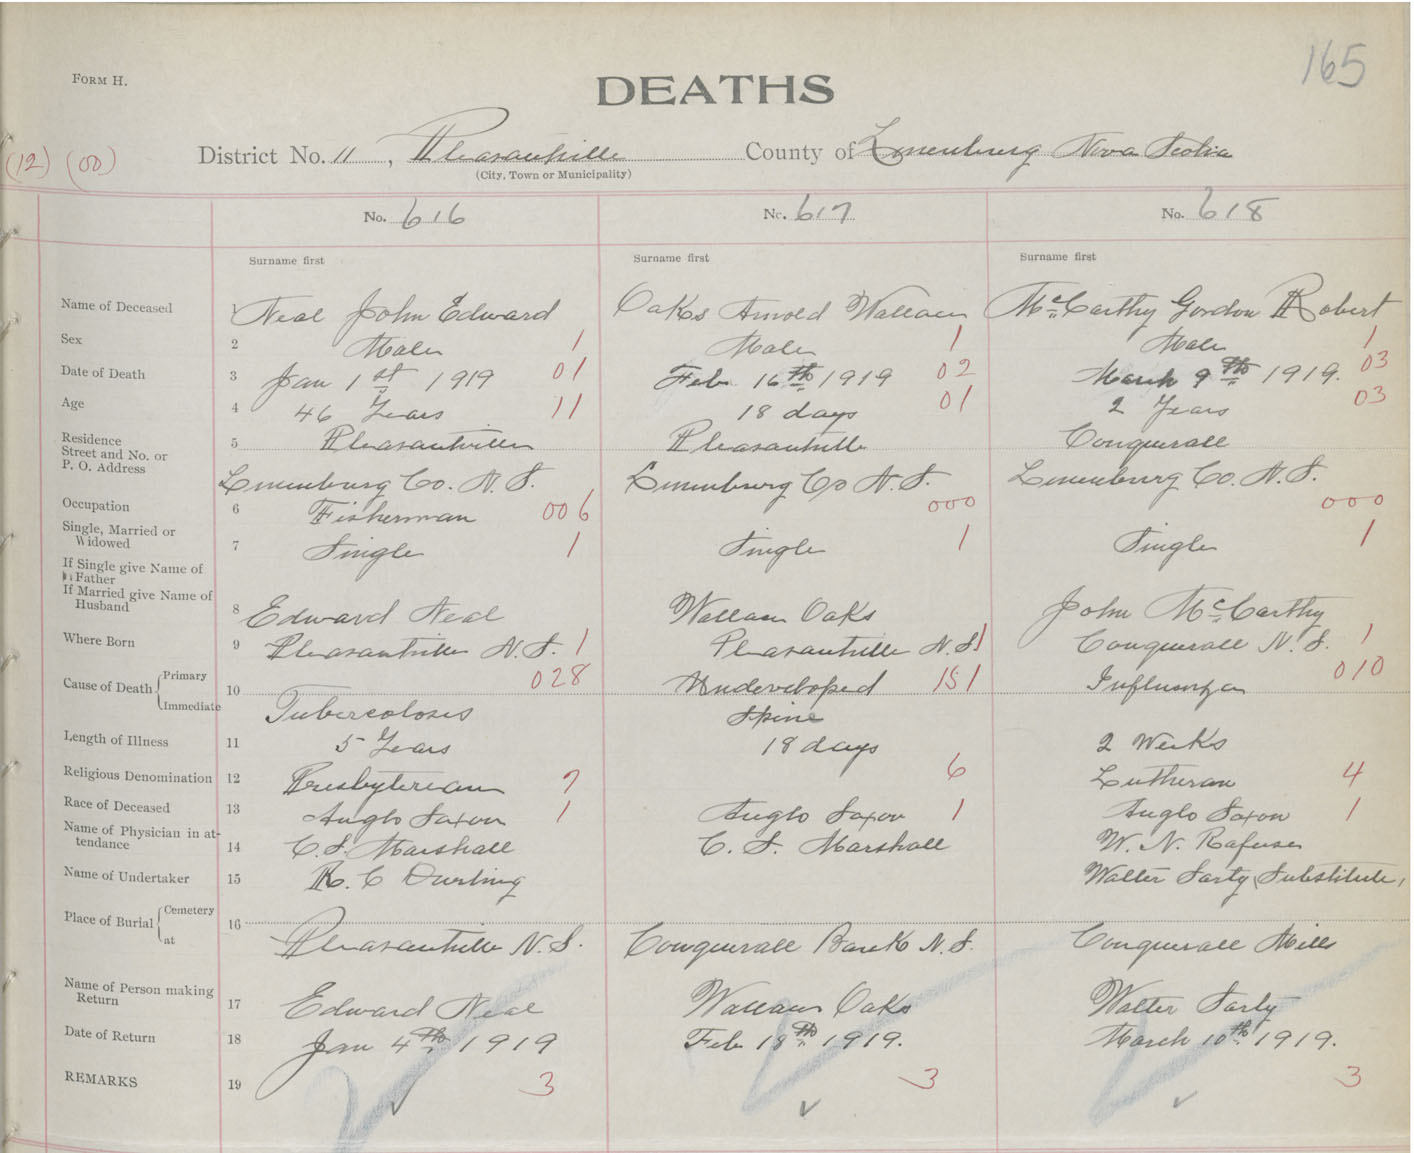 165
FORM H.
DEATHS
(12) (00) District No. 11, Pleasantville County of Lunenburg Nova Scotia
(City, Town or Municipality)
No. 616 No. 617 No. 618
Surname first Surname first Surname first
Name of Deceased 1 Neal John Edward Oaks Arnold Wallace McCarthy Gordon Robert
Sex 2 Male 1 Male 1 Male 1
Date of Death 3 Jan 1st 1919 01 Feb 16th 1919 02 March 9th 1919. 03
Age 4 46 Years 11 18 days 01 2 Years 03
Residence
Street and No. or 5 Pleasantville Pleasantville Conquerall
P. O. Address
Lunenburg Co. N. S. Lunenburg Co N. S. Lunenburg Co. N. S.
Occupation 6 Fisherman 006 000 000
Single, Married or
Widowed 7 Single 1 Single 1 Single 1
If Single give Name of
Father
If Married give Name of
Husband 8 Edward Neal Wallace Oaks John McCarthy
Where Born 9 Pleasantville N. S. 1 Pleasantville N. S. 1 Conquerall N. S. 1
Cause of Death Primary 10 028 Undeveloped 151 Influenza 010
Immediate Tubercolosis Spine
Length of Illness 11 5 Years 18 days 2 Weeks
Religious Denomination 12 Presbyterian 7 6 Lutheran 4
Race of Deceased 13 Anglo Saxon 1 Anglo Saxon 1 Anglo Saxon 1
Name of Physician in at-
tendance 14 C. S. Marshall C. S. Marshall W. N. Rafuse
Name of Undertaker 15 R. C Durling Walter Sarty (Substitute)
Place of Burial Cemetery 16
at Pleasantville N. S. Conquerall Bank N. S. Conquerall Mills
Name of Person making
Return 17 Edward Neal Wallace Oaks Walter Sarty
Date of Return 18 Jan 4th 1919 Feb 18th 1919. March 10th 1919.
REMARKS 19 3 3 3